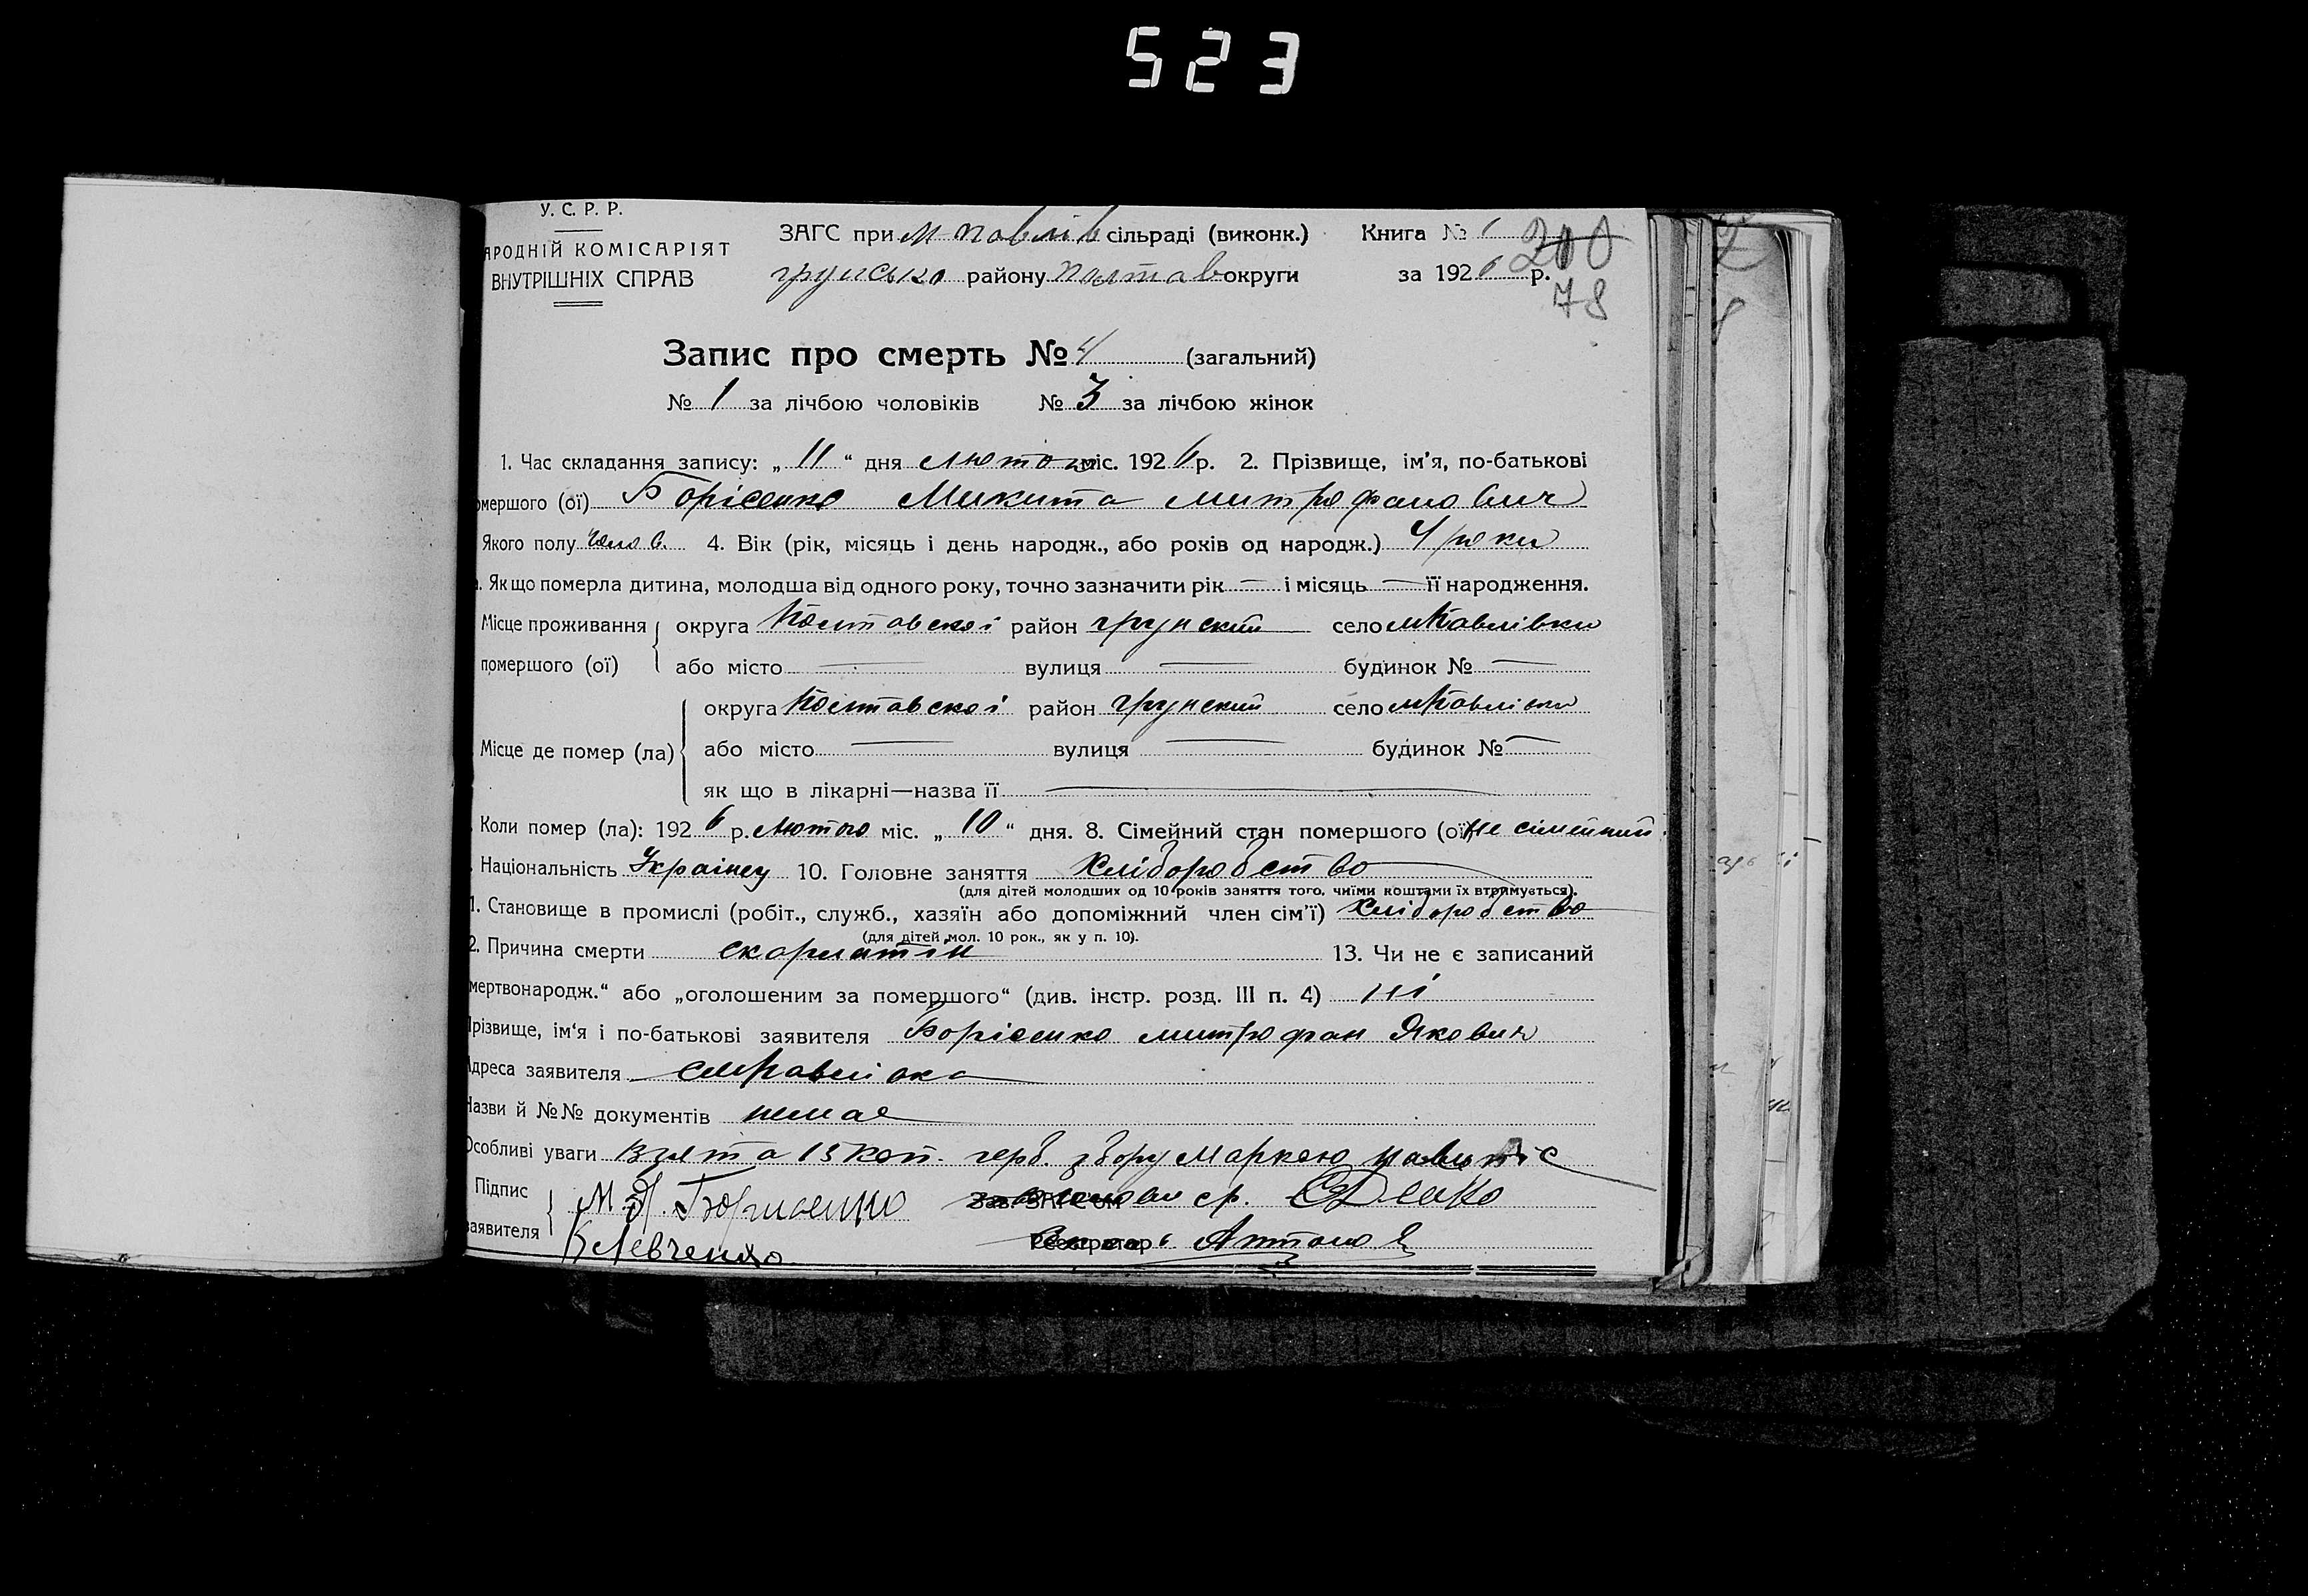 523
У. С. Р. Р.
АРОДНІЙ КОМІСАРІЯТ
ВНУТРІШНІХ СПРАВ
ЗАГС при М Павлів сільраді (виконк.) Книга № 1 200
грунсько району Полтав округи за 1926 р.
78
Запис про смерть № 4 (загальний)
№ 1 за лічбою чоловіків № 3 за лічбою жінок
1. Час складання запису: „ 11 “ дня Лютого міс. 1926 р. 2. Прізвище, ім’я, по-батькові
омершого (ої) Борісенко Микита митрофанович
Якого полу Чолов. 4. Вік (рік, місяць і день народж., або років од народж.) 4 роки
. Як що померла дитина, молодша від одного року, точно зазначити рік — і місяць — її народження.
Місце проживання округа Полтавскої район грунский село мПавлівки
помершого (ої) або місто — вулиця — будинок № —
округа Полтавскої район грунский село
Місце де помер (ла) або місто — вулиця — будинок № —
як що в лікарні—назва її —
. Коли помер (ла): 1926 р. Лютого міс. „ 10 “ дня. 8. Сімейний стан помершого (ої) не сімейний
. Національність Українец 10. Головне заняття Хліборобство
(для дітей молодших од 10 років заняття того, чиїми коштами їх втримується).
1. Становище в промислі (робіт., служб., хазяїн або допоміжний член сім’ї) Хліборобство
(для дітей мол. 10 рок., як у п. 10).
2. Причина смерти скарлатін 13. Чи не є записаний
мертвонародж.“ або „оголошеним за помершого“ (див. інстр. розд. III п. 4) ні
Прізвище, ім‘я і по-батькові заявителя Борісенко митрофан Якович
Адреса заявителя смПавлівка
Назви й №№ документів немае
Особливі уваги Взята 15 коп. герб. збору маркою
Підпис М. Я. Борисенко Зав. ЗАГС’ом
заявителя Левченко Реєстратор